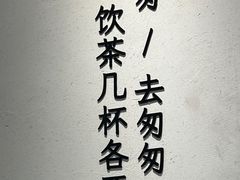 / 去匆匆
饮茶几杯各